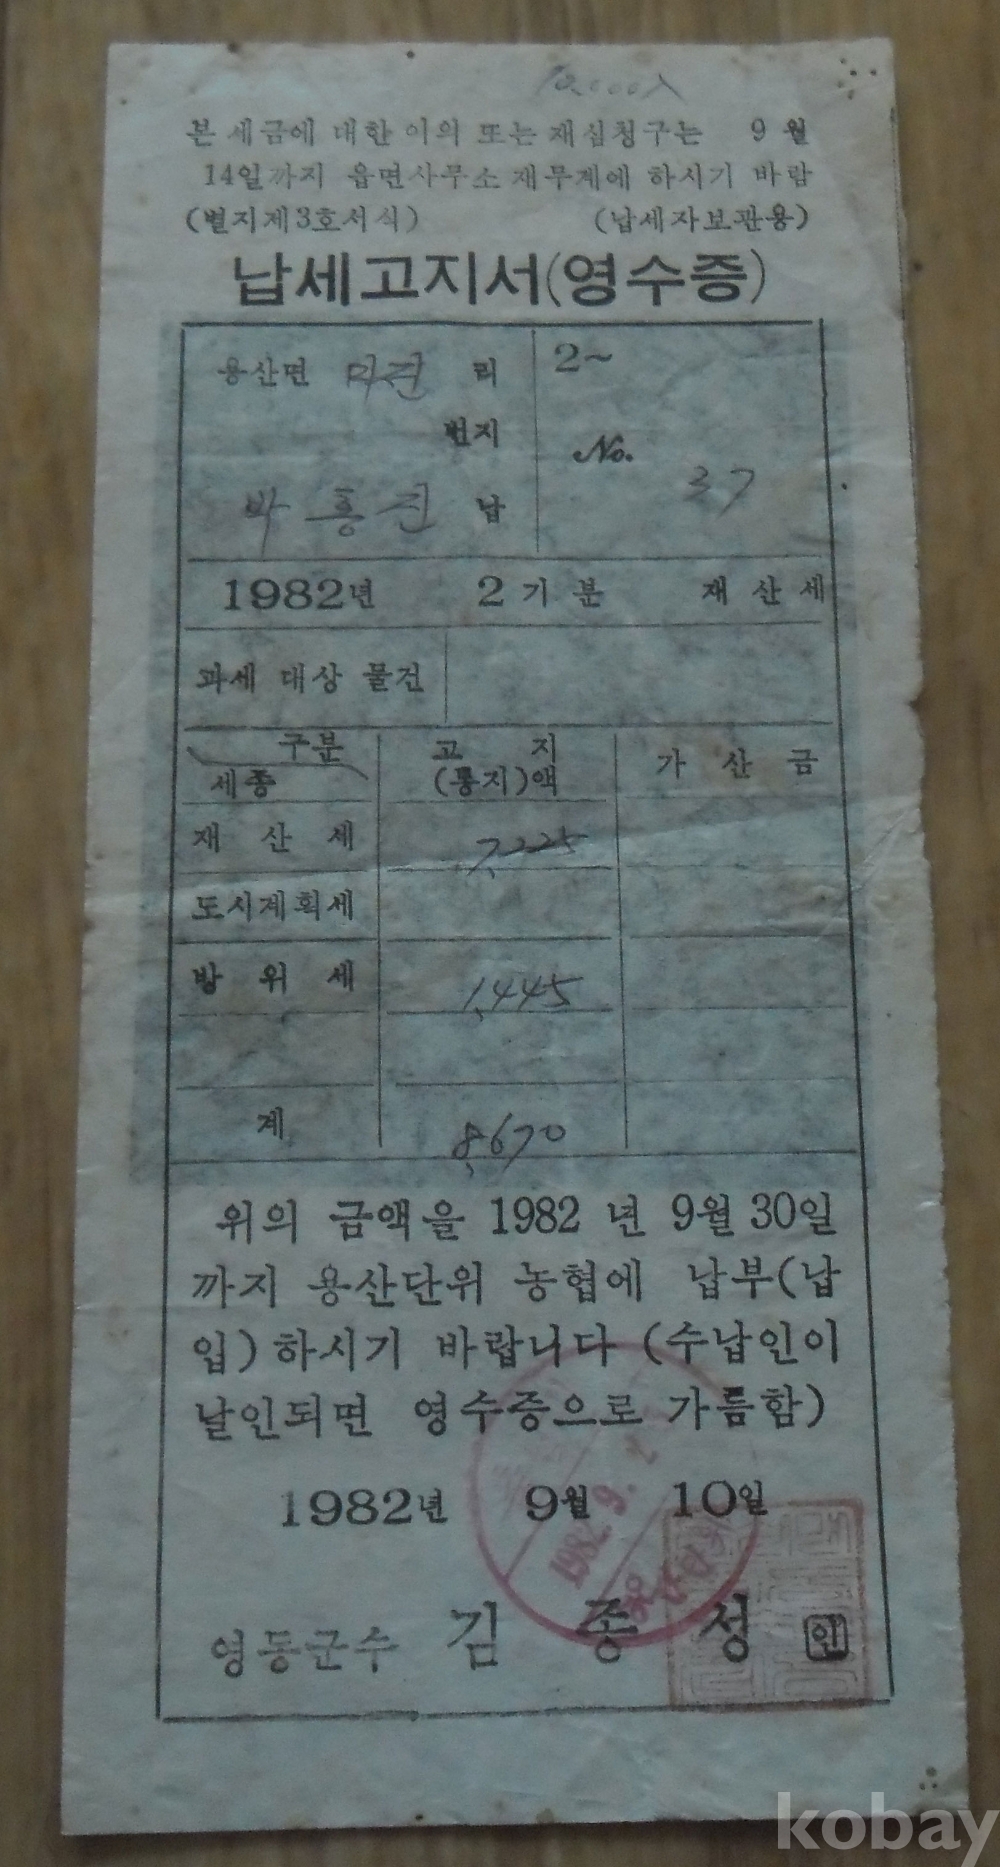 10,000入
본 세금에 대한 이의 또는 재심청구는 9월
14일까지 읍면사무소 재무계에 하시기 바람
(별지제3호서식) (납세자보관용)
납세고지서(영수증)
용산면 미전 리 2~
번지 No. 37
박흥진 납
1982년 2기분 재산세
과세 대상 물건
구분 고지 가산금
세종 (통지)액
재산세 7,225
도시계획세
방위세 1,445
계 8,670
위의 금액을 1982년 9월 30일
까지 용산단위 농협에 납부(납
입)하시기 바랍니다 (수납인이
날인되면 영수증으로 가름함)
1982년 9월 10일
1982. 9.
영동군수 김종성 인
kobay